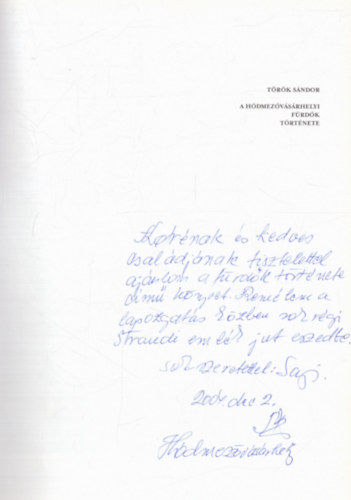 TÖRÖK SÁNDOR
A HÓDMEZŐVÁSÁRHELYI
FÜRDŐK
TÖRTÉNETE
és kedves
családjának tisztelettel
ajánlom a fürdők története
című könyvet. Remélem a
lapozgatás közben sok régi
strandi emlék jut eszedbe.
sok szeretettel:
2004 dec 2.
Hódmezővásárhely